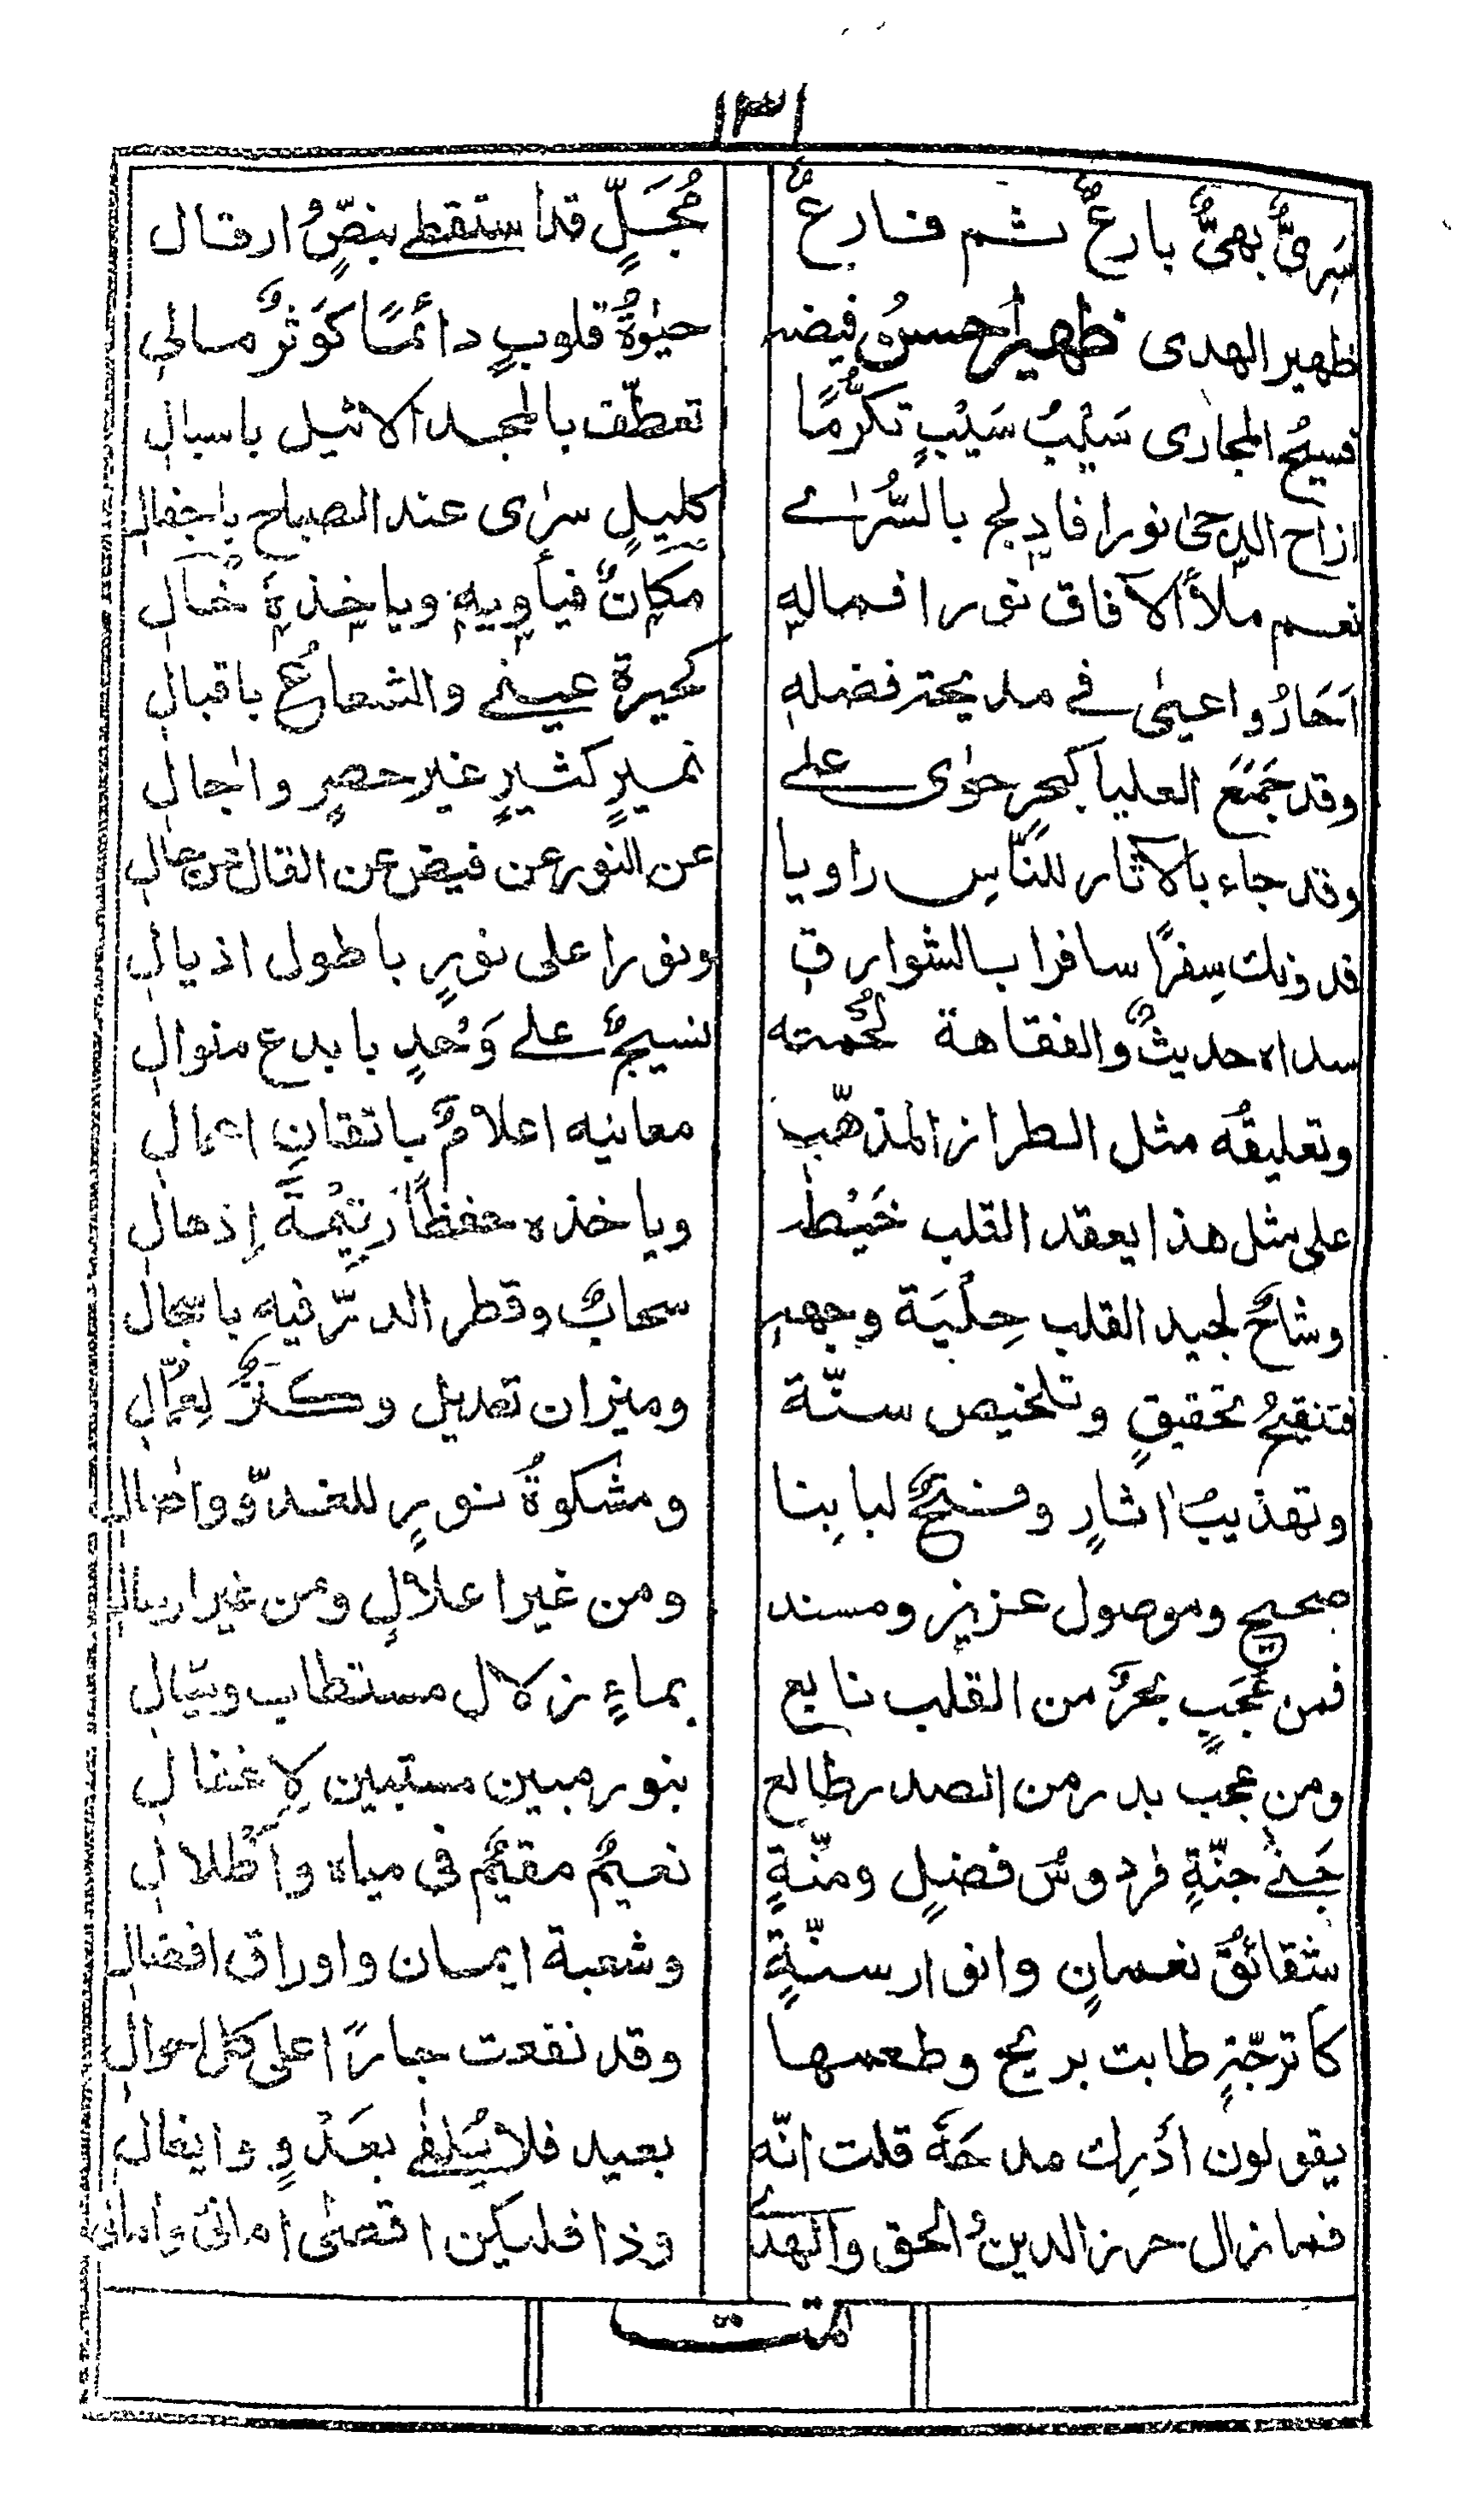 ١٣١
سَرِیٌّ بهیٌّ بارعٌ ثم فارعٌ مُجَلٍّ قد استقطے بنصٍّ ارقال
ظهیر الهدی ظهیر احسنُ فیضہ حیٰوةُ قلوبٍ دائمًا کَوثرٌ سالِ
فسیحُ المجاری سَیْبُ سَیْبٍ تکرُّمًا تعطّف بالمجد الاثیل باسبالِ
ازاح الدجیٰ نورا فادلج بالسُّراے کلیلٍ سرٰی عند الصباح باجفالِ
نعم ملأ الآفاق نورا فمالہٖ مکانٌ فیأویہٖ ویاخذہٗ خالِ
اَحَارُ واعییٰ فے مدیحۃ فضلہٖ کحیرة عینے والشعاعُ باقبالِ
وقد جَمَعَ العلیا کبحرٍ حوٰی علے نمیرٍ کثیرٍ غیر حصرٍ واٰجالِ
وقد جاء بالآثار للنّاسِ راویا عن النور عن فیض عن القال عن عالِ
فدونك سِفرًا سافرا بالشوارقِ ونورا علی نورٍ باطول اذیالِ
سداه حدیثٌ والفقاهة لُحمته نسیجٌ علے وَحْدٍ بابدع منوالِ
وتعلیقُه مثل الطراز المذهّب معانیه اعلامٌ باتقانِ اعمالِ
علی مثل هذا یعقد القلب خَیْطَہ ویاخذه حفظًا رتِیْمةَ إذهالِ
وشاحٌ لجید القلب حِلْیَة وجهہٖ سحابٌ وقطر الدرّ فیهِ باسجالِ
فتنقیحُ تحقیقٍ وتلخیص سنّة ومیزان تعدیل وکنزٌ لِعُمّالِ
وتهذیبُ اٰثارٍ وفتحٌ لبابنا ومشکوةُ نورٍ للغدوّ واٰصالِ
صحیحٍ وموصول عزیزٍ ومسند ومن غیر اعلالٍ ومن غیر ارسالِ
فمن عَجَبٍ بحرٌ من القلب نابع بماءٍ زلال مستطاب وسیّالِ
ومن عجب بدر من الصدر طالع بنور مبین مستبین لإغفالِ
جَنٰے جنّةِ فردوسُ فضلٍ ومنّةٍ نعیمٌ مقیمٌ فی میاه واَظْلالِ
شقائقُ نعمانٍ وانوار سنّةٍ وشعبة ایمان واوراق افضالِ
کاترجّةٍ طابت بریح وطعمها وقد نفعت جارًا علی کل احوالِ
یقولون أدْرِك مدحَهٗ قلت انّہ بعید فلا یُلفٰے بعَدْوٍ وایغالِ
فما زال حرز الدینُ والحق والهدٰے وذا فلیکن اقصٰی امانیّ وأمالی
تمت